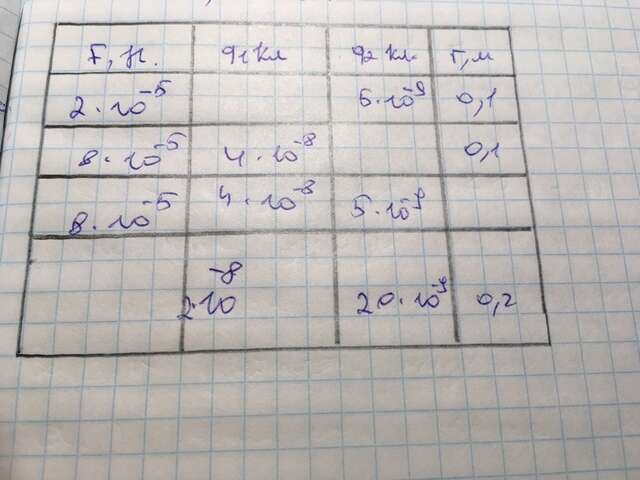 F, Н. q₁ Кл q₂ Кл. r, м
2·10⁻⁵ 5·10⁻⁹ 0,1
8·10⁻⁵ 4·10⁻⁸ 0,1
8·10⁻⁵ 4·10⁻⁸ 5·10⁻⁹
2·10⁻⁸ 20·10⁻⁹ 0,2